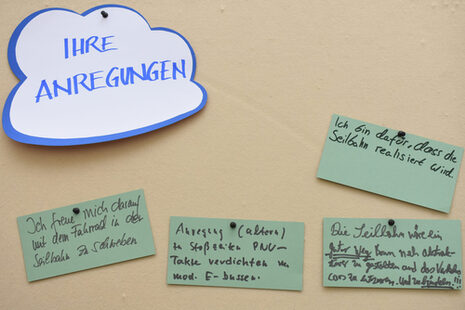 IHRE
ANREGUNGEN
Ich bin dafür, dass die
Seilbahn realisiert wird.
Ich freue mich darauf
mit dem Fahrrad in der
Seilbahn zu schweben
Anregung (altern)
zu Stoßzeiten PNV-
Takte verdichten m
mod. E-bussen.
Die Seilbahn wäre ein
guter Weg Bonn nach
zu gestalten und das Verkehrs
zu